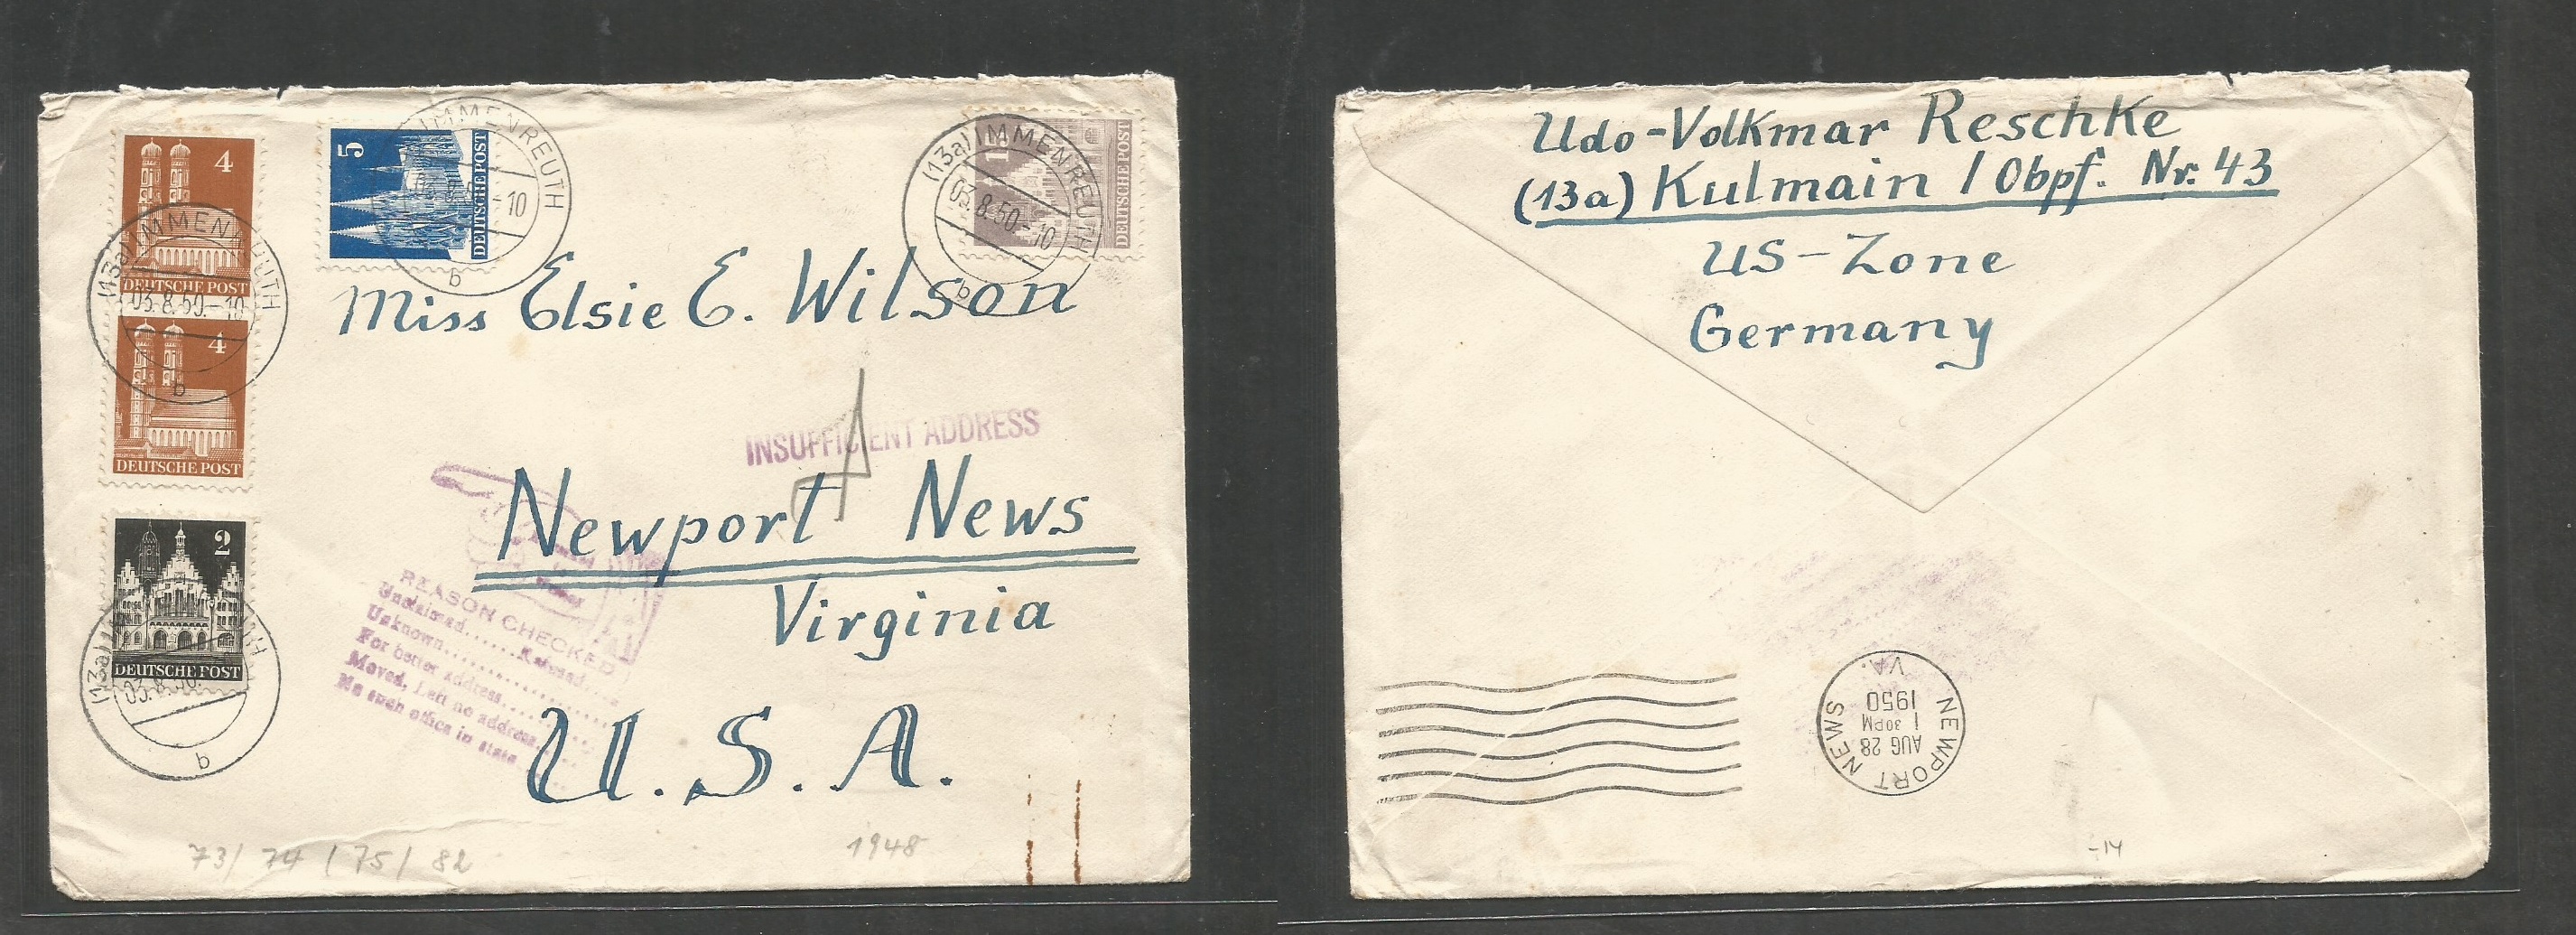 4
DEUTSCHE POST
4
DEUTSCHE POST
2
DEUTSCHE POST
5
DEUTSCHE POST
DEUTSCHE POST
(13a) IMMENREUTH
03.8.50.-10
b
(13a) IMMENREUTH
b
-10
(13a) IMMENREUTH
03.8.50.-10
b
(13a)
03.8.50.
b
Miss Elsie E. Wilson
INSUFFICIENT ADDRESS
Newport News
Virginia
U.S.A.
REASON CHECKED
Unclaimed...... Refused....
Unknown
For better address
Moved, Left no address
No such office in state
73/ 74 / 75 / 82
1948
Udo-Volkmar Reschke
(13a) Kulmain / Obpf. Nr. 43
US-Zone
Germany
NEWPORT NEWS
AUG 28
1 30PM
1950
VA.
-14